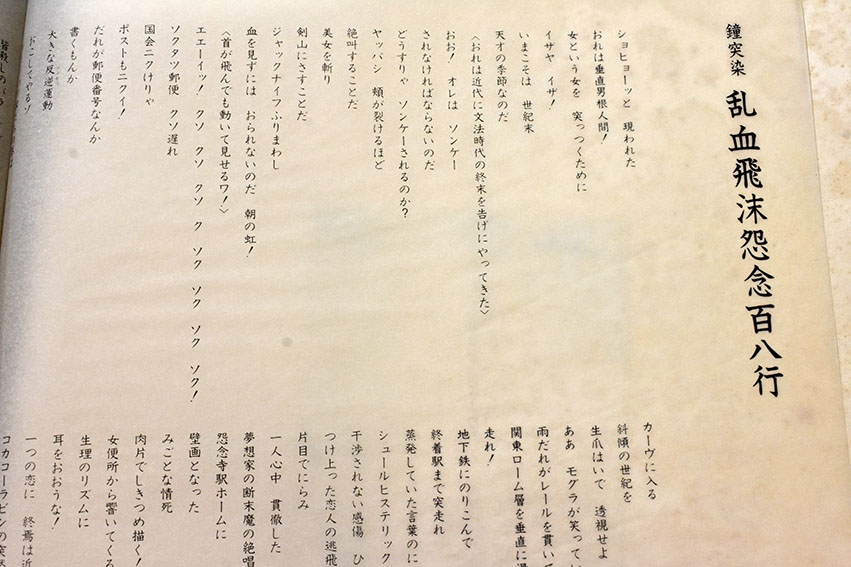 鐘突染 乱血飛沫怨念百八行
ショヒョーッと 現われた
おれは垂直男根人間！
女という女を 突っつくために
イザヤ イザ！
いまこそは 世紀末
天才の季節なのだ
〈おれは近代に文法時代の終末を告げにやってきた〉
おお！ オレは ソンケー
されなければならないのだ
どうすりゃ ソンケーされるのか？
ヤッパシ 頬が裂けるほど
絶叫することだ
美女を斬り
剣山にさすことだ
ジャックナイフふりまわし
血を見ずには おられないのだ 朝の虹！
〈首が飛んでも動いて見せるワ！〉
エエーイッ！ クソ クソ クソ ク ソク ソク ソク ソク！
ソクタツ郵便 クソ遅れ
国会ニクけりゃ
ポストもニクイ！
だれが郵便番号なんか
書くもんか
大きな反逆運動
カーヴに入る
斜傾の世紀を
生爪はいで 透視せよ
ああ モグラが笑ってい
雨だれがレールを貫いて
関東ローム層を垂直に
走れ！
地下鉄にのりこんで
終着駅まで突走れ
蒸発していた言葉のに
シュールヒステリック
干渉されない感傷 ひ
つけ上った恋人の逃飛
片目でにらみ
一人心中 貫徹した
夢想家の断末魔の絶唱
怨念寺駅ホームに
壁画となった
みごとな情死
肉片でしきつめ描く！
女便所から響いてくる
生理のリズムに
耳をおおうな！
一つの恋に 終焉は近
コカコーラビンの突然